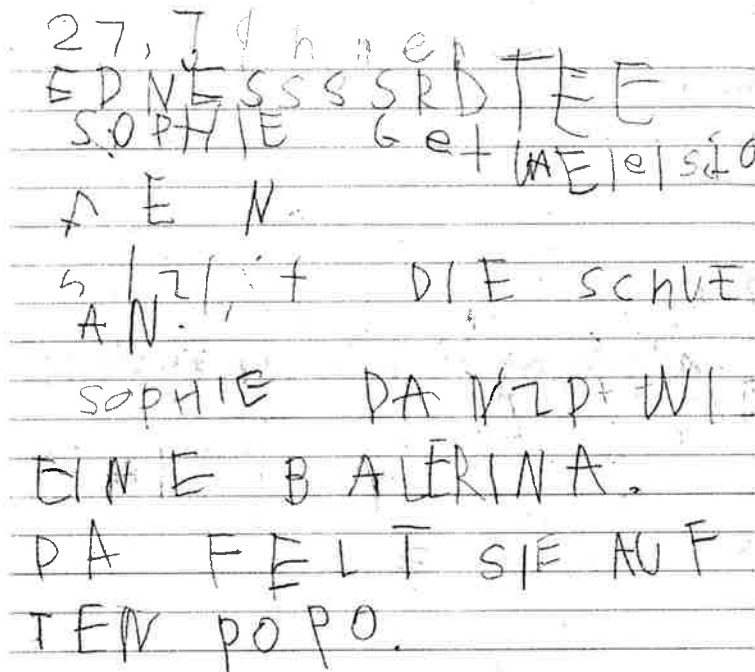 27. Jänner
EDNESSSSRDTEE
SOPHIE Get
A E N.
DIE SchUE
AN.
SOPHIE DANZD WI
EINE BALERINA.
DA FELT SIE AUF
TEN POPO.